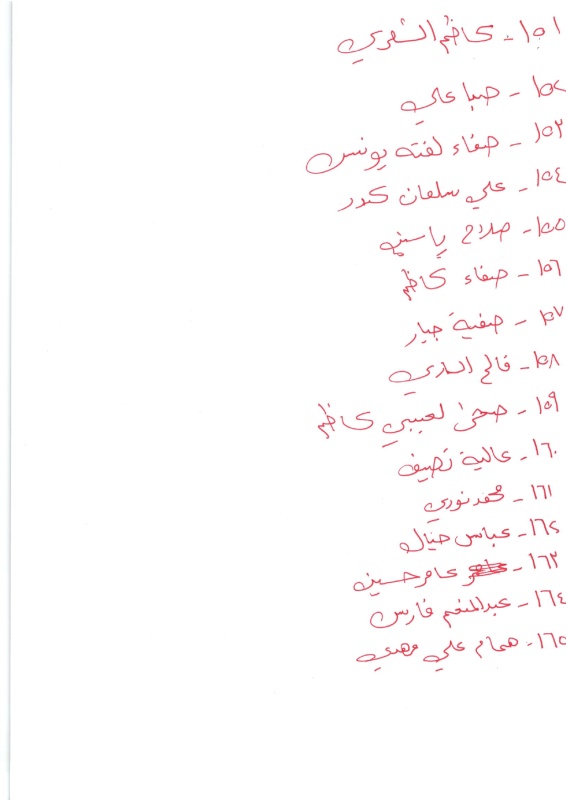 ١٥١ - كاظم الشمري
١٥٢ - صبا علي
١٥٣ - صفاء لفته يونس
١٥٤ - علي سلمان كدور
١٥٥ - صلاح ياسين
١٥٦ - صفاء كاظم
١٥٧ - صفية جبار
١٥٨ - فالح الساري
١٥٩ - ضحى لعيبي كاظم
١٦٠ - عالية نصيف
١٦١ - محمد نوري
١٦٢ - عباس حيال
١٦٣ - عامر حسين
١٦٤ - عبدالمنعم فارس
١٦٥ - همام علي مهدي